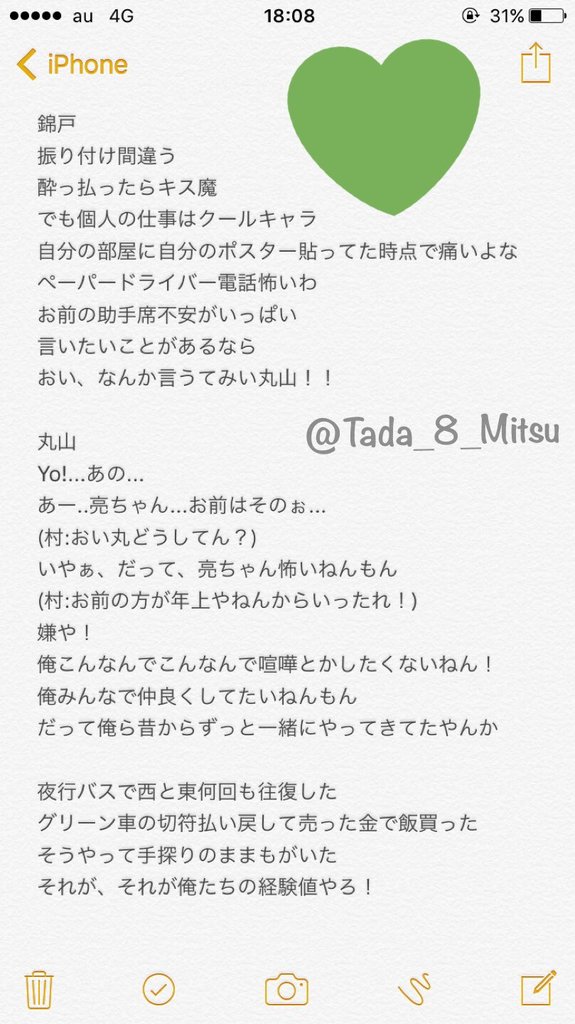 au 4G 18:08 31%
iPhone
錦戸
振り付け間違う
酔っ払ったらキス魔
でも個人の仕事はクールキャラ
自分の部屋に自分のポスター貼ってた時点で痛いよな
ペーパードライバー電話怖いわ
お前の助手席不安がいっぱい
言いたいことがあるなら
おい、なんか言うてみい丸山！！
@Tada_8_Mitsu
丸山
Yo!...あの...
あー..亮ちゃん...お前はそのぉ...
(村:おい丸どうしてん？)
いやぁ、だって、亮ちゃん怖いねんもん
(村:お前の方が年上やねんからいったれ！)
嫌や！
俺こんなんでこんなんで喧嘩とかしたくないねん！
俺みんなで仲良くしてたいねんもん
だって俺ら昔からずっと一緒にやってきてたやんか
夜行バスで西と東何回も往復した
グリーン車の切符払い戻して売った金で飯買った
そうやって手探りのままもがいた
それが、それが俺たちの経験値やろ！